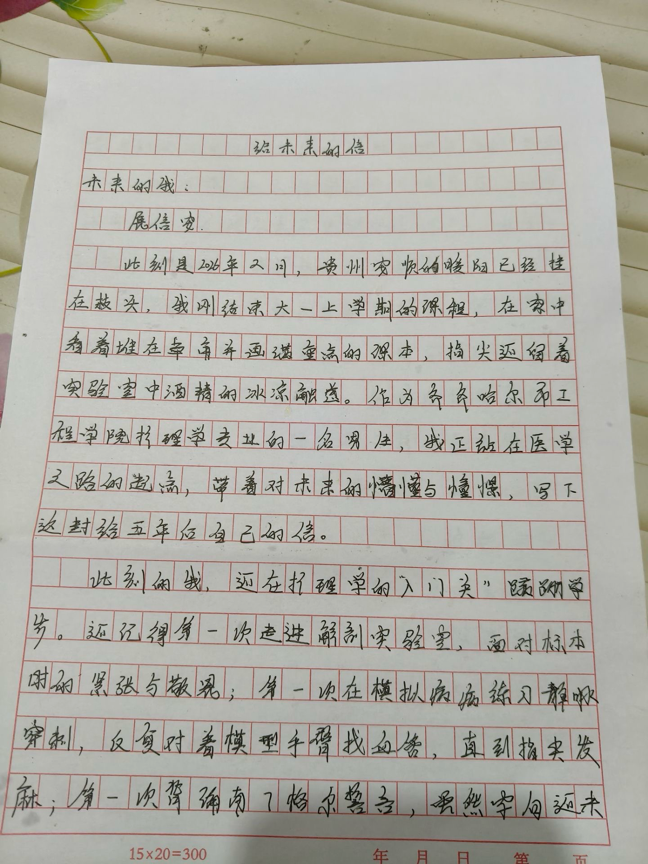 给未来的信
未来的我：
展信安.
此刻是2026年2月，贵州安顺的暖阳已经挂
在枝头，我刚结束大一上学期的课程，在家中
看着堆在桌角并画满重点的课本，指尖还留着
实验室中酒精的冰凉触送。作为齐齐哈尔市工
程学院护理学专业的一名男生，我正站在医学
之路的起点，带着对未来的懵懂与憧憬，写下
这封给五年后自己的信。
此刻的我，还在护理学的“入门关”蹒跚学
步。还记得第一次走进解剖实验室，面对标本
时的紧张与敬畏；第一次在模拟病病练习静脉
穿刺，反复对着模型手臂找血管，直到指尖发
麻；第一次背诵南丁格尔誓言，虽然字句还未
15×20=300
年 月 日 第 页